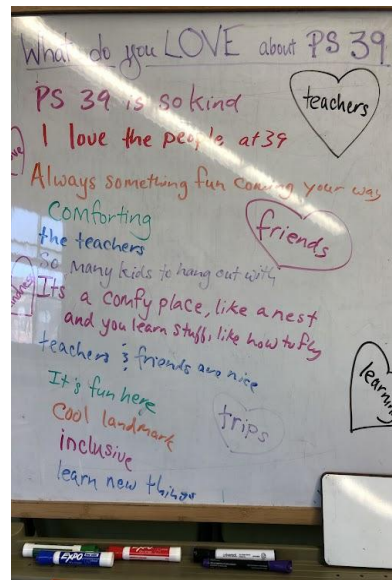 What do you LOVE about PS 39
PS 39 is so kind
teachers
I love the people at 39
Always something fun coming your way
Comforting
friends
the teachers
So many kids to hang out with
Its a comfy place, like a nest
and you learn stuff, like how to fly
teachers & friends are nice
learning
It's fun here
Cool landmark
trips
inclusive
learn new things
EXPO